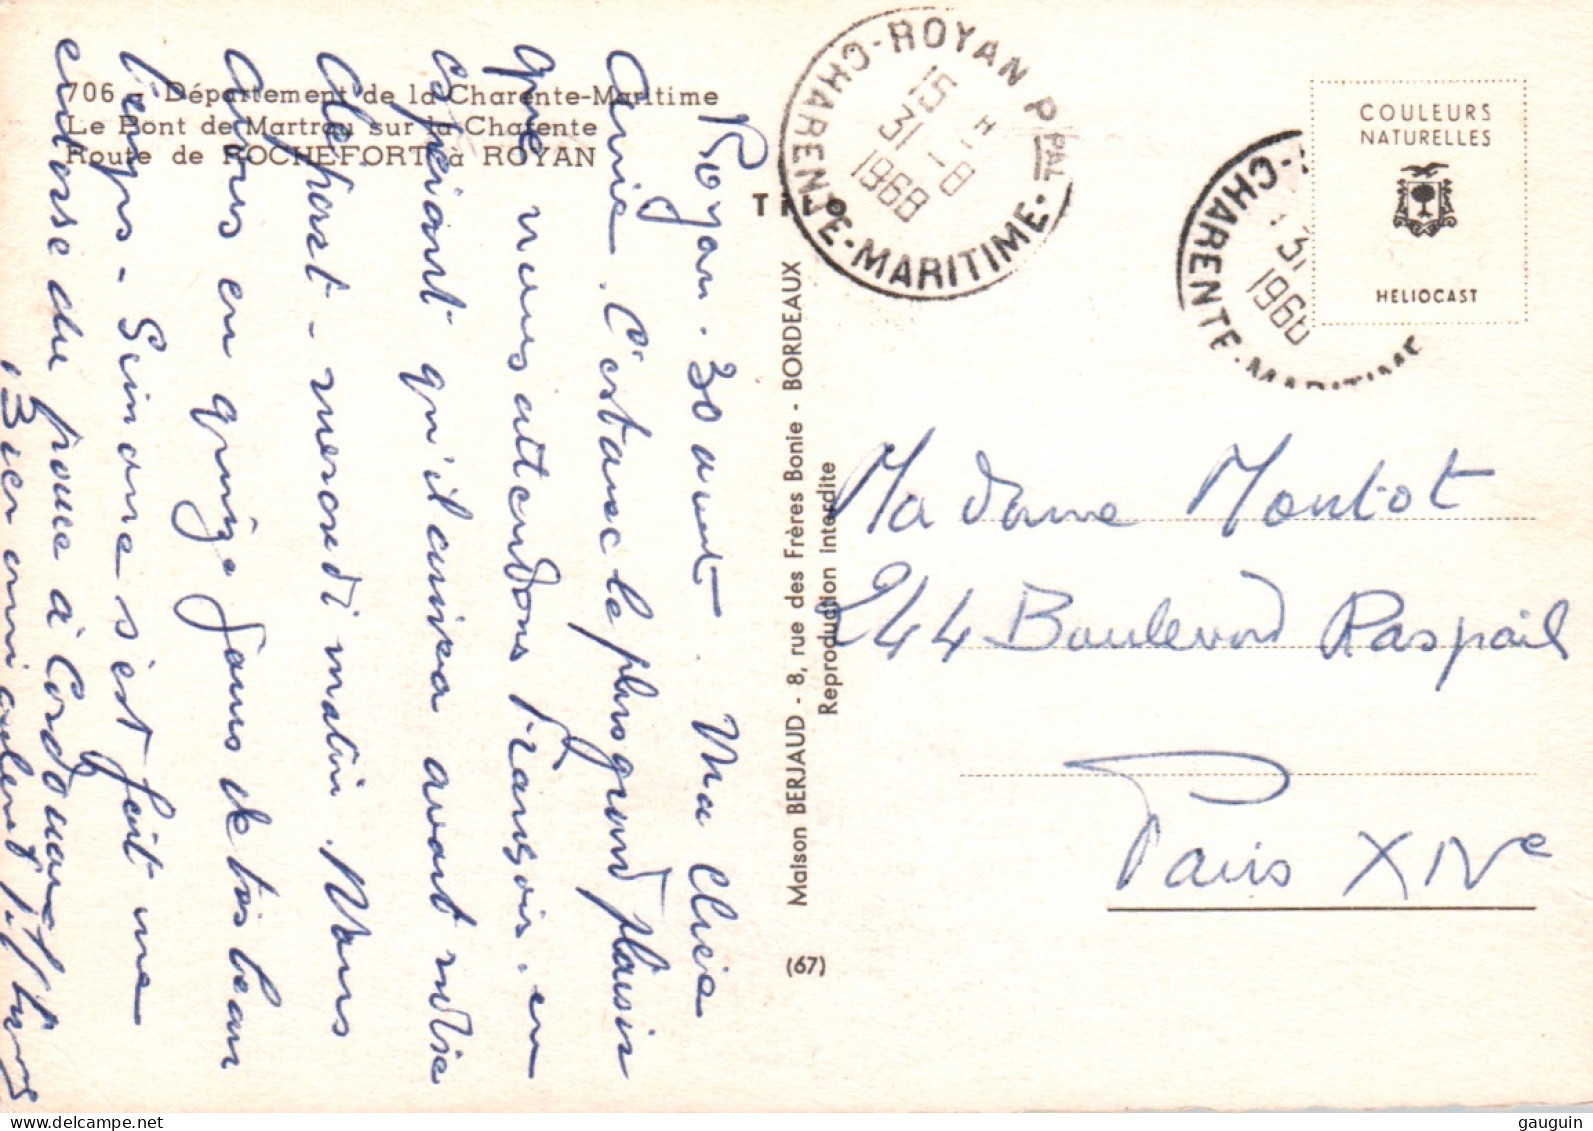 706 - Département de la Charente-Maritime
Le Pont de Martrou sur la Charente
Route de ROCHEFORT à ROYAN
Royan. 30 aout. Ma chère
amie. C'est avec le plus grand plaisir
que nous attendons François, en
espérant qu'il arrivera avant notre
départ - mercredi matin. Nous
avons eu quinze jours de très beau
temps - Simone s'est fait une
entorse du pouce à Cordouan
Bien amicalement
TILO
ROYAN PPAL
CHARENTE-MARITIME
15 H
31 - 8
1968
CHARENTE-MARITIME
31
1968
COULEURS
NATURELLES
HELIOCAST
Maison BERJAUD - 8, rue des Frères Bonie - BORDEAUX
Reproduction Interdite
(67)
Madame Montot
244 Boulevard Raspail
Paris XIVe
gauguin